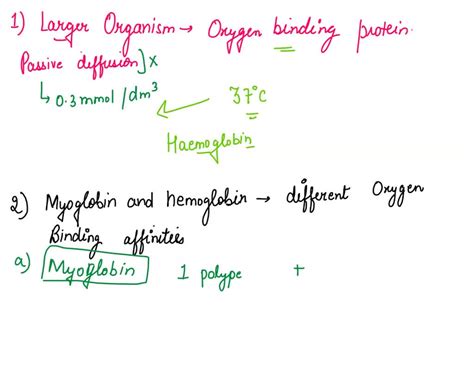 1) Larger Organism → Oxygen binding protein.
Passive diffusion] x
↳ 0.3 mmol/dm³ ← 37°C
Haemoglobin
2) Myoglobin and hemoglobin → different Oxygen
Binding affinities
a) Myoglobin 1 polype +